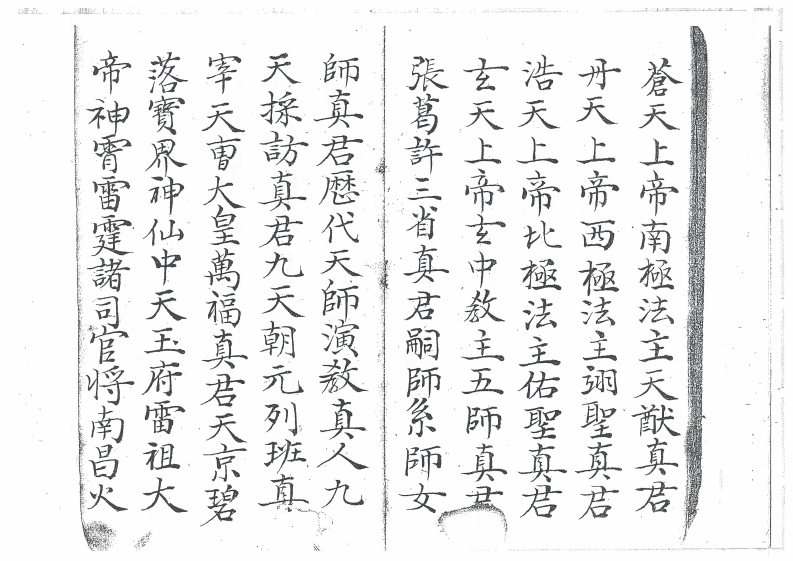 蒼天上帝南極法主天猷真君
丹天上帝西極法主翊聖真君
浩天上帝北極法主佑聖真君
玄天上帝玄中教主五師真君
張葛許三省真君嗣師系師女
師真君歷代天師演教真人九
天採訪真君九天朝元列班真
宰天曹大皇萬福真君天京碧
落寶界神仙中天玉府雷祖大
帝神霄雷霆諸司官将南昌火